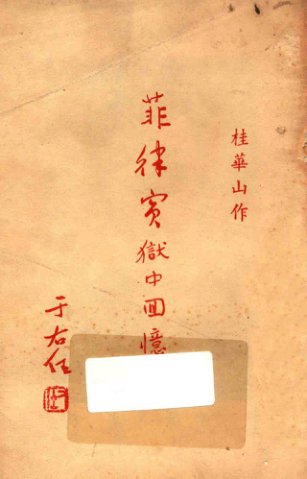 桂華山作
菲律賓獄中回憶
于右任